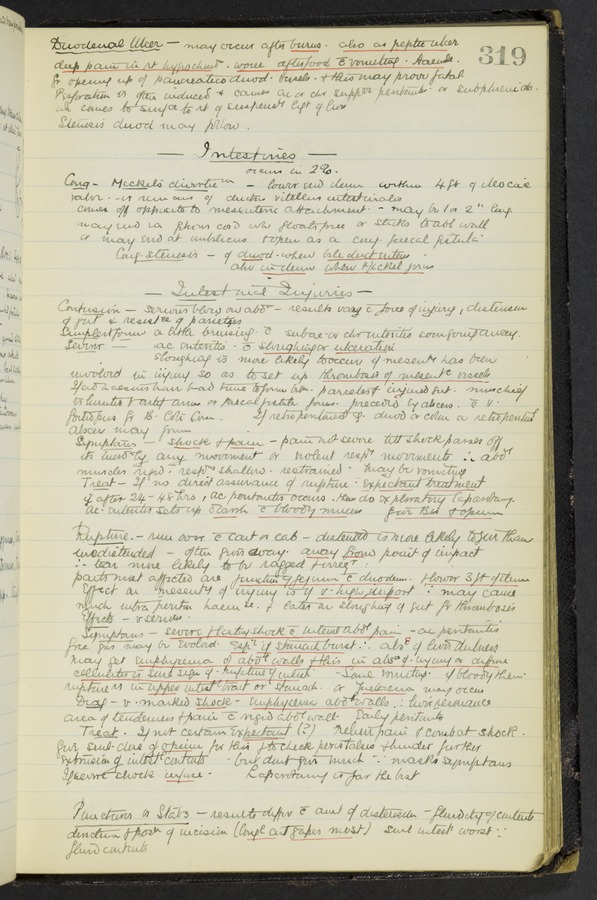 Duodenal Ulcer – may occur after burns. also as peptic ulcer
319
deep pain in rt hypochond. worse after food c̄ vomiting. Haem.
fr opening up of pancreatico duod. vessels & this may prove fatal.
Perforation is often induced & causes ac or chr suppur peritonitis or subphrenic abs.
when comes to surface to rt of suspensy ligt of liver
Stenosis duod may follow.
– Intestines –
occurs in 2%.
Cong – Meckel's diverticm – lower end ileum within 4 ft of ileocaec
valve. is remains of ductus vitellus intestinalis
comes off opposite to mesenteric attachment – may be 1 or 2" long.
may end in fibrous cord wh floats free or sticks to abl wall
or may end at umbilicus & open as a cong. faecal fistula
Cong. stenosis – of duod. when bile duct enters
also in ileum when Meckel joins
– Intestinal Injuries –
Contusion – Serious blow on abdn – results vary c̄ force of injury, distension
of gut & resistce of parietes
Simplest form a little bruising. c̄ subac or chr enteritis soon going away.
Severer – ac enteritis. c̄ sloughing or ulceration
Sloughing is more likely to occur if mesenty has been
involved in injury so as to set up thrombosis of mesentc vessels
If adhaesions have had time to form btn. parietes & injured gut. mischief
is limited & only abm or faecal fistula forms. preceded by abscess. c̄ v.
foetid pus fr B. Coli Com. If retroperitoneal eg. duod or colon a retroperitonl
abscess may form
Symptoms – shock & pain – pain not severe till shock passes off
its incrd by any movement or violent respy movements ∴ abdl
muscles rigid. respns shallow. restrained. may be vomiting
Treat – If no direct assurance of rupture. expectant treatment
if after 24–48 hrs, ac peritonitis occurs. then do exploratory laparotomy.
ac. enteritis sets up diarrh c̄ bloody mucus give Bis & opium
Rupture. – run over c̄ cart or cab – distended is more likely to go than
undistended – often gives away. away from point of impact
∴ tear more likely to be ragged & irregr
parts most affected are junction of jejunm c̄ duodenm. & lower 3 ft of ileum
Effect on mesenty of injury is if v. high import. may cause
much intra periton haem or. & later on sloughing of gut fr thrombosis
Effects – v serious.
Symptoms – severe & lasting shock c̄ intent abdl pain – ac peritonitis
free gas may be evolvd. espy if stomach burst ∴ absce of liver dulness
may get emphysema of abdl walls & this in absce of injury or diffuse
cellulitis is sure sign of rupture of intest – Some vomiting. if bloody then
rupture is in upper intestl tract or stomach. or Melaena may occur
Diag – v. marked shock – Emphysema abdl walls ∴ liver resonance
area of tenderness & pain c̄ rigid abdl wall. Early peritonits
Treat. If not certain Expectant (?) relieve pain & combat shock.
Give small dose of opium for this & to check peristalsis & hinder further
extrusion of intestl contents but dont give much ∵ masks symptoms
If severe shock infuse – Laparotomy is far the best
Punctures or Stabs – results differ c̄ amt of distension – fluidity of contents
direction & posn of incision (longl cut gapes most) small intest worst ∵
fluid contents